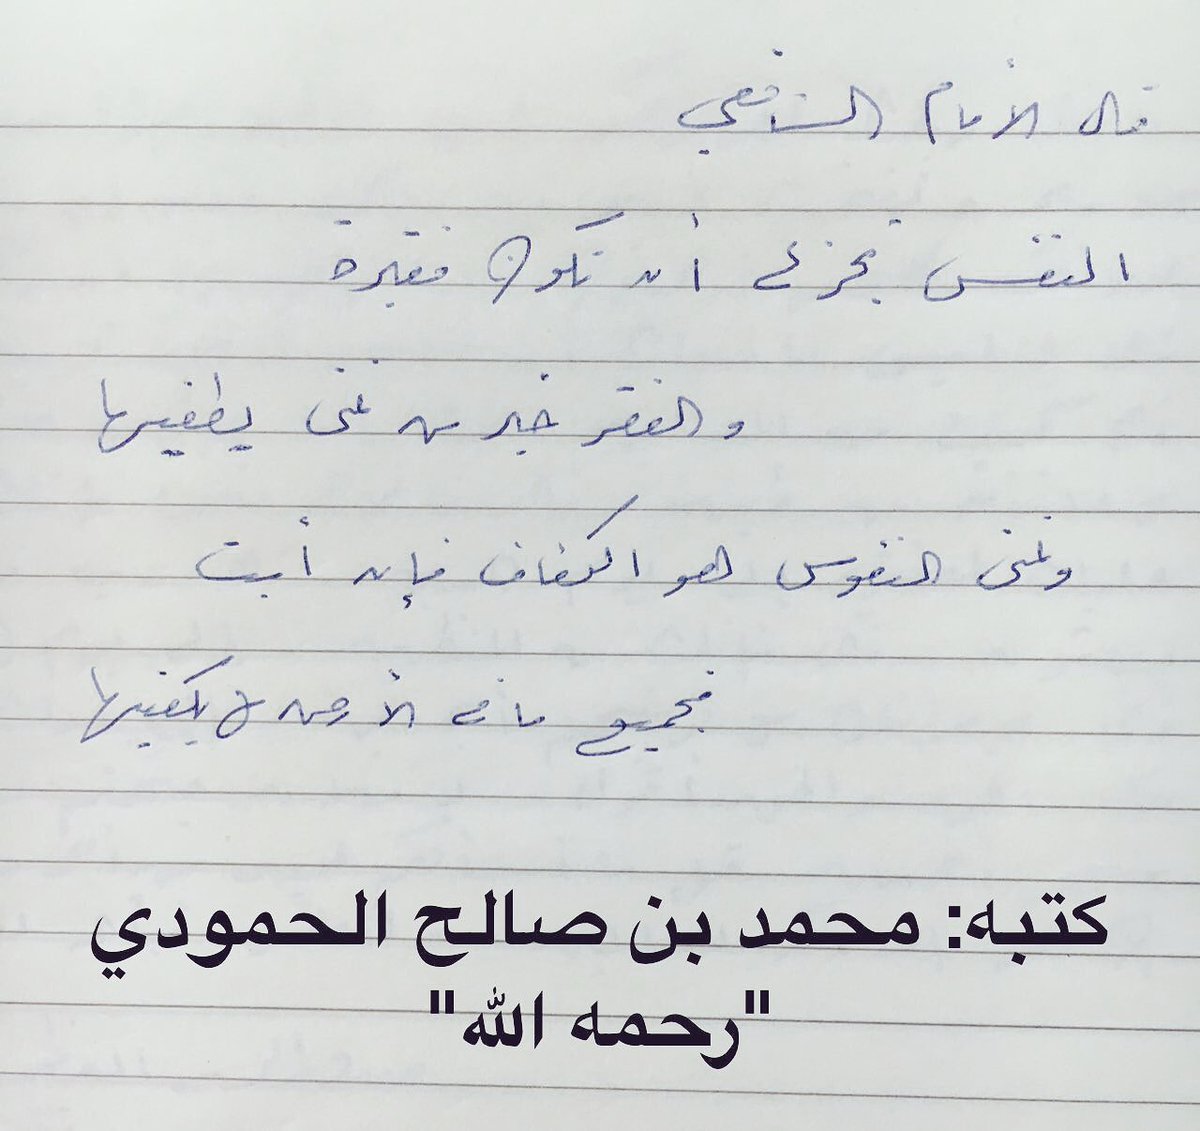 قال الأمام الشافعي
النفس تجزع أن تكون فقيرة
والفقر خير من غنى يطغيها
وغنى النفوس هو الكفاف فإن أبت
فجميع ما في الأرض لا يكفيها
كتبه: محمد بن صالح الحمودي
"رحمه الله"